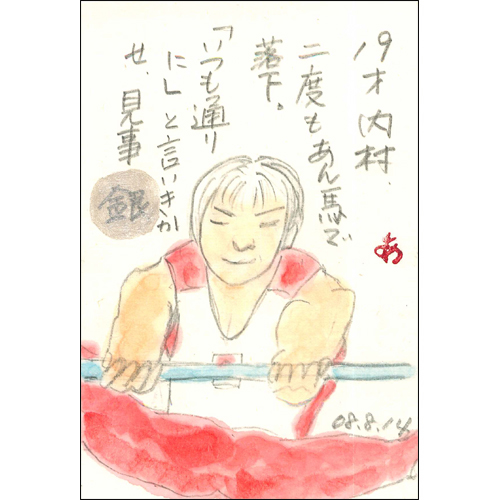 19才内村、
二度もあん馬で
落下。
「いつも通り
に」と言いきか
せ、見事
銀
あ
08.8.14